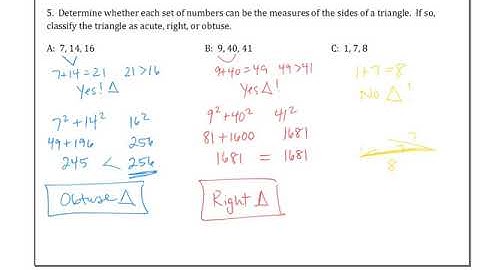 5. Determine whether each set of numbers can be the measures of the sides of a triangle. If so,
classify the triangle as acute, right, or obtuse.
A: 7, 14, 16
7+14=21 21>16
Yes! Δ
7²+14² 16²
49+196 256
245 < 256
Obtuse Δ
B: 9, 40, 41
9+40=49 49>41
Yes Δ!
9²+40² 41²
81+1600 1681
1681 = 1681
Right Δ
C: 1, 7, 8
1+7=8
No Δ!
7
8